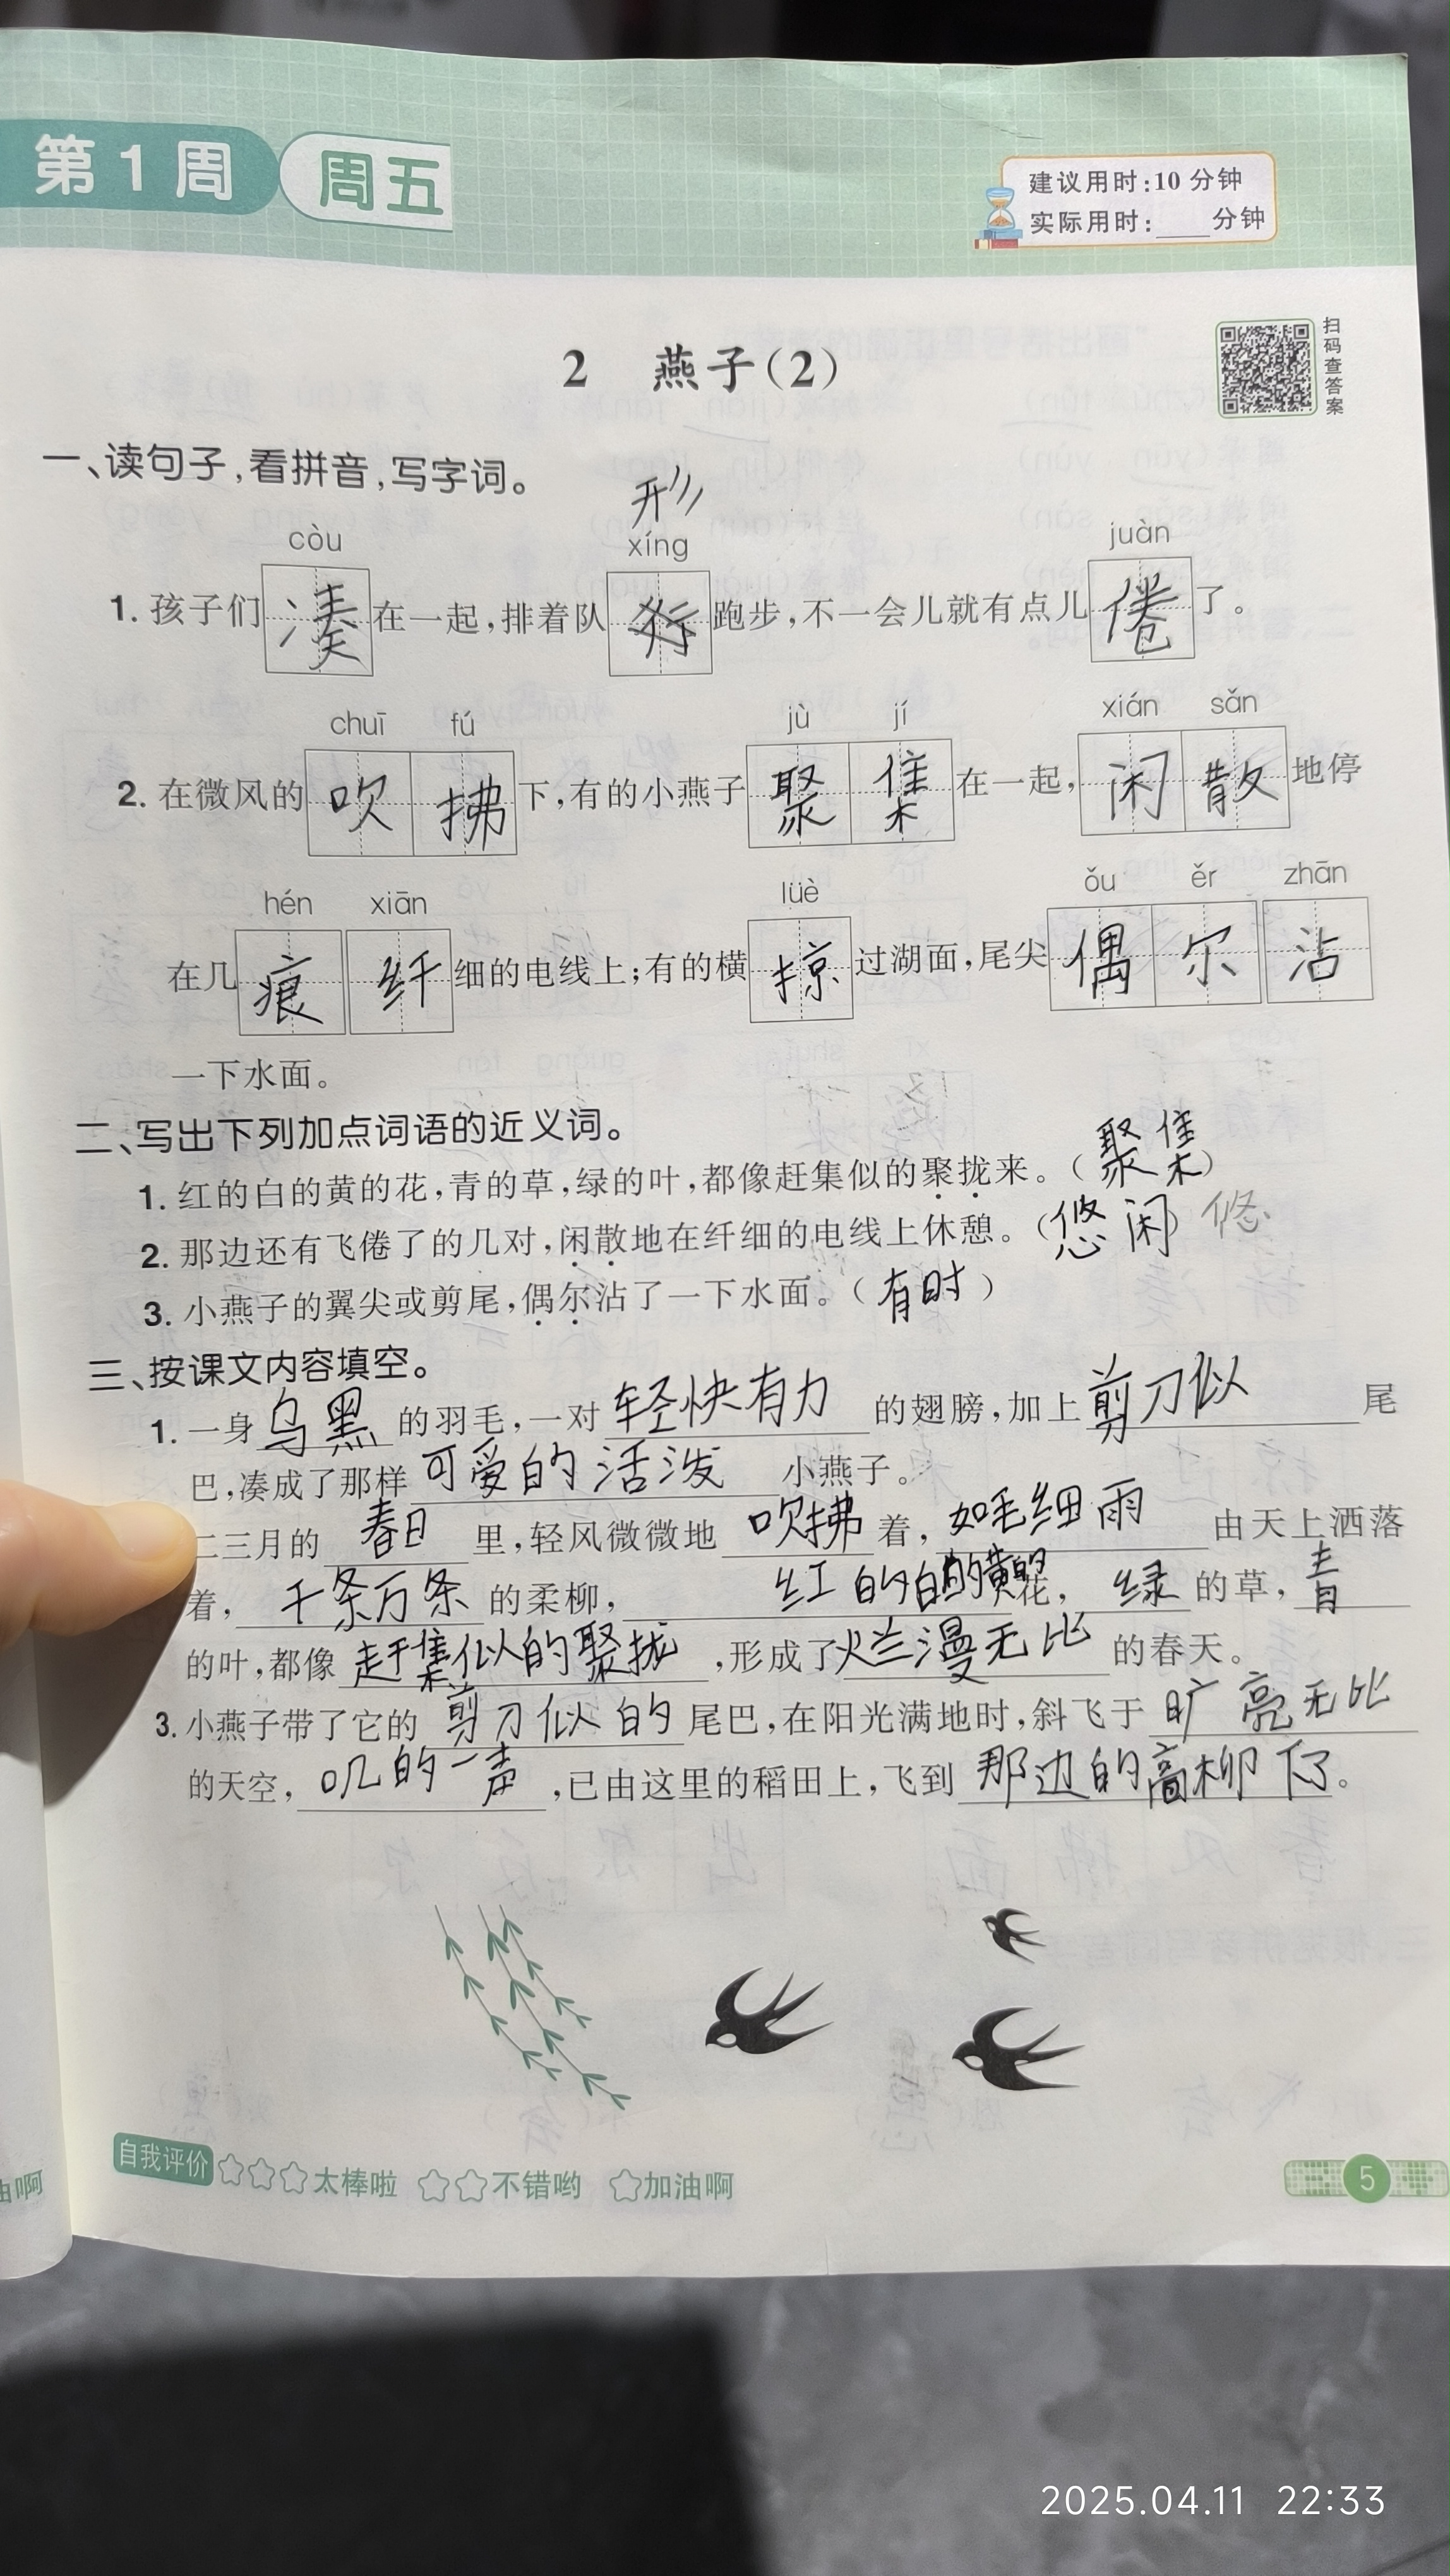 第1周 周五
建议用时:10分钟
实际用时:____分钟
扫码查答案
2 燕子(2)
一、读句子,看拼音,写字词。
形
còu xíng juàn
1. 孩子们凑在一起,排着队跑步,不一会儿就有点儿倦了。
chuī fú jù jí xián sǎn
2. 在微风的吹拂下,有的小燕子聚集在一起,闲散地停
hén xiān lüè ǒu ěr zhān
在几痕纤细的电线上;有的横掠过湖面,尾尖偶尔沾
一下水面。
二、写出下列加点词语的近义词。
1. 红的白的黄的花,青的草,绿的叶,都像赶集似的聚拢来。(聚集)
2. 那边还有飞倦了的几对,闲散地在纤细的电线上休憩。(悠闲) 悠
3. 小燕子的翼尖或剪尾,偶尔沾了一下水面。(有时)
三、按课文内容填空。
1. 一身乌黑的羽毛,一对轻快有力的翅膀,加上剪刀似尾
巴,凑成了那样可爱的活泼小燕子。
二三月的春日里,轻风微微地吹拂着,如毛细雨由天上洒落
着,千条万条的柔柳,红的白的黄的花,绿的草,青
的叶,都像赶集似的聚拢,形成了烂漫无比的春天。
3. 小燕子带了它的剪刀似的尾巴,在阳光满地时,斜飞于旷亮无比
的天空,叽的一声,已由这里的稻田上,飞到那边的高柳下了。
自我评价 太棒啦 不错哟 加油啊
由啊
5
2025.04.11 22:33